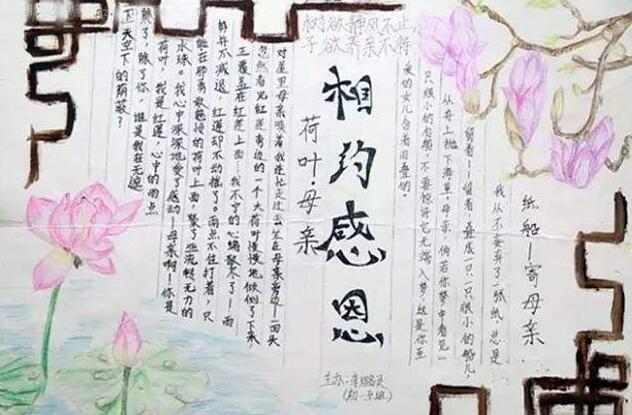 树欲静风不止,
子欲养亲不得
纸船—寄母亲
我从不妄弃了一张纸,总是
留着—留着,叠成一只一只很小的船儿,
从舟上抛下海里。母亲,倘若你梦中看见一
只很小的白船,不要惊讶它无端入梦。这是你至
爱的女儿含着泪叠的。
相约感恩
荷叶·母亲
对屋里母亲唤着我,我连忙走过去坐在母亲旁边—一回头
忽然看见红莲旁边的一个大荷叶慢慢地倾侧了下来,
正覆盖在红莲上面…我不宁的心绪散尽了!雨
势并不减退,红莲却不动摇了。雨点不住打着,只
能在那勇敢慈怜的荷叶上面,聚了些流转无力的
水珠。我心中深深地受了感动—母亲啊!你是
荷叶,我是红莲,心中的雨点
来了,除了你,谁是我在无遮
天空下的荫蔽?
主办:李
(初一五班)